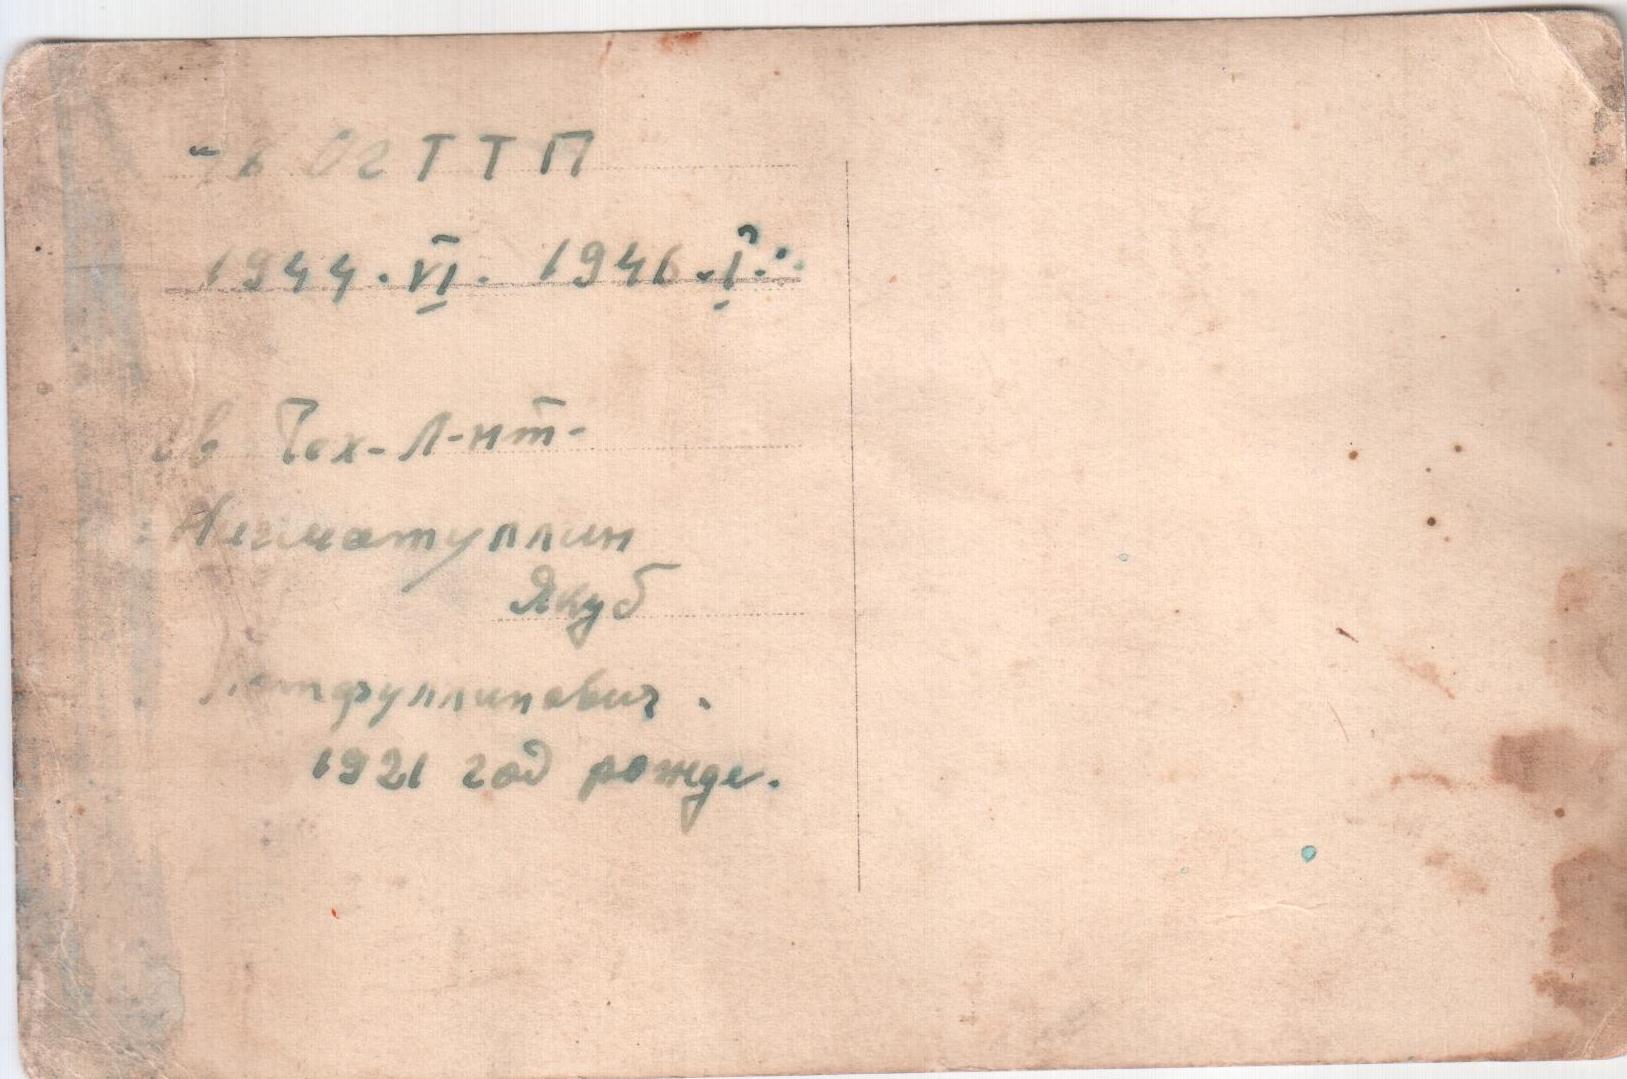 - в Ог Т Т П
1944. VI. 1946. I.
Тех-Л-нт-
Нигматуллин
Якуб
1921 год рожде.